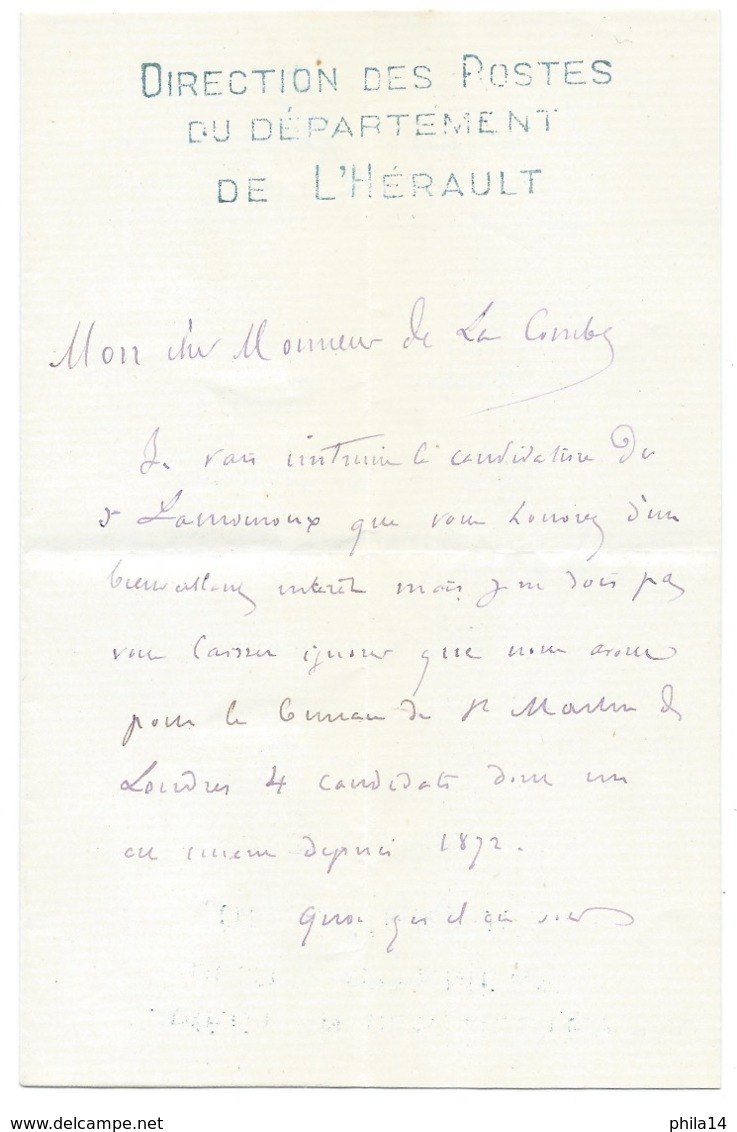 DIRECTION DES POSTES
DU DÉPARTEMENT
DE L'HÉRAULT
Mon cher Monsieur de La Combe
Je vais instruire la candidature du
Sr Lamouroux que vous honorez d'un
bienveillant intérêt mais je ne dois pas
vous laisser ignorer que nous avons
pour le bureau de St Martin de
Londres 4 candidats dont un
depuis 1872.
Quoi qu'il en soit
www.delcampe.net
phila14